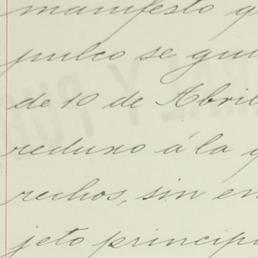 manifesto q
pulco se gua
de 10 de Abril
reduxo á la q
rechos, sin en
jeto principa